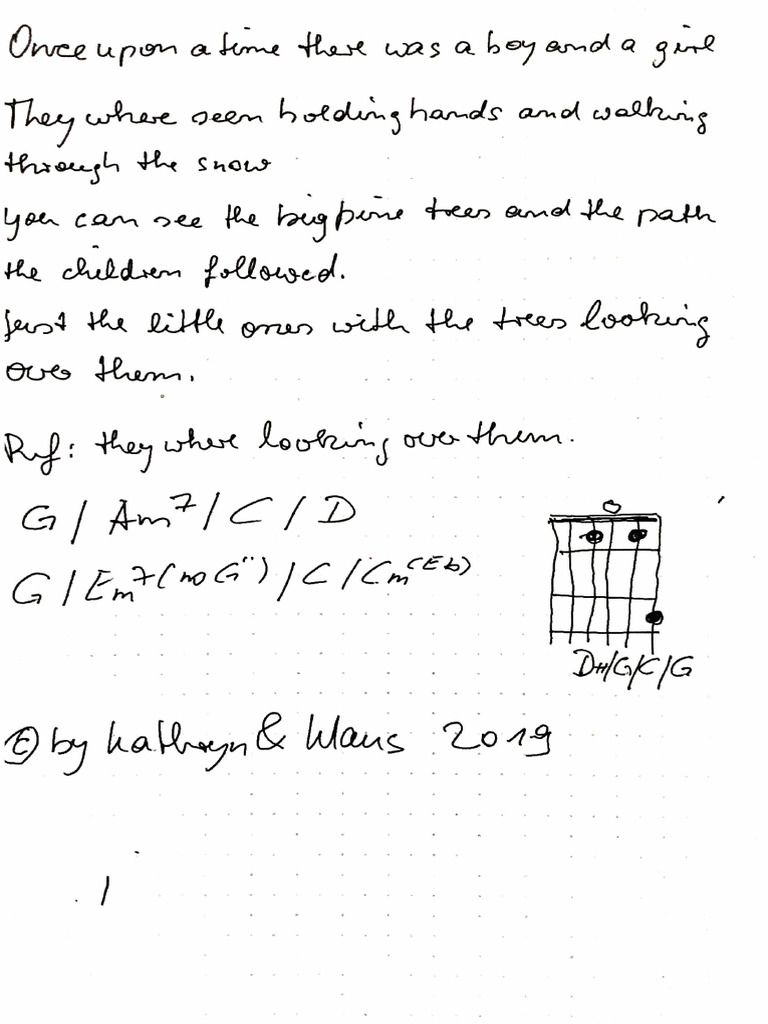 Once upon a time there was a boy and a girl
They where seen holding hands and walking
through the snow
you can see the big pine trees and the path
the children followed.
just the little ones with the trees looking
over them.
Ref: they where looking over them.
G / Am7 / C / D
G / Em7 (no G") / C / Cm(Eb)
D#/G/C/G
© by Kathryn & Klaus 2019